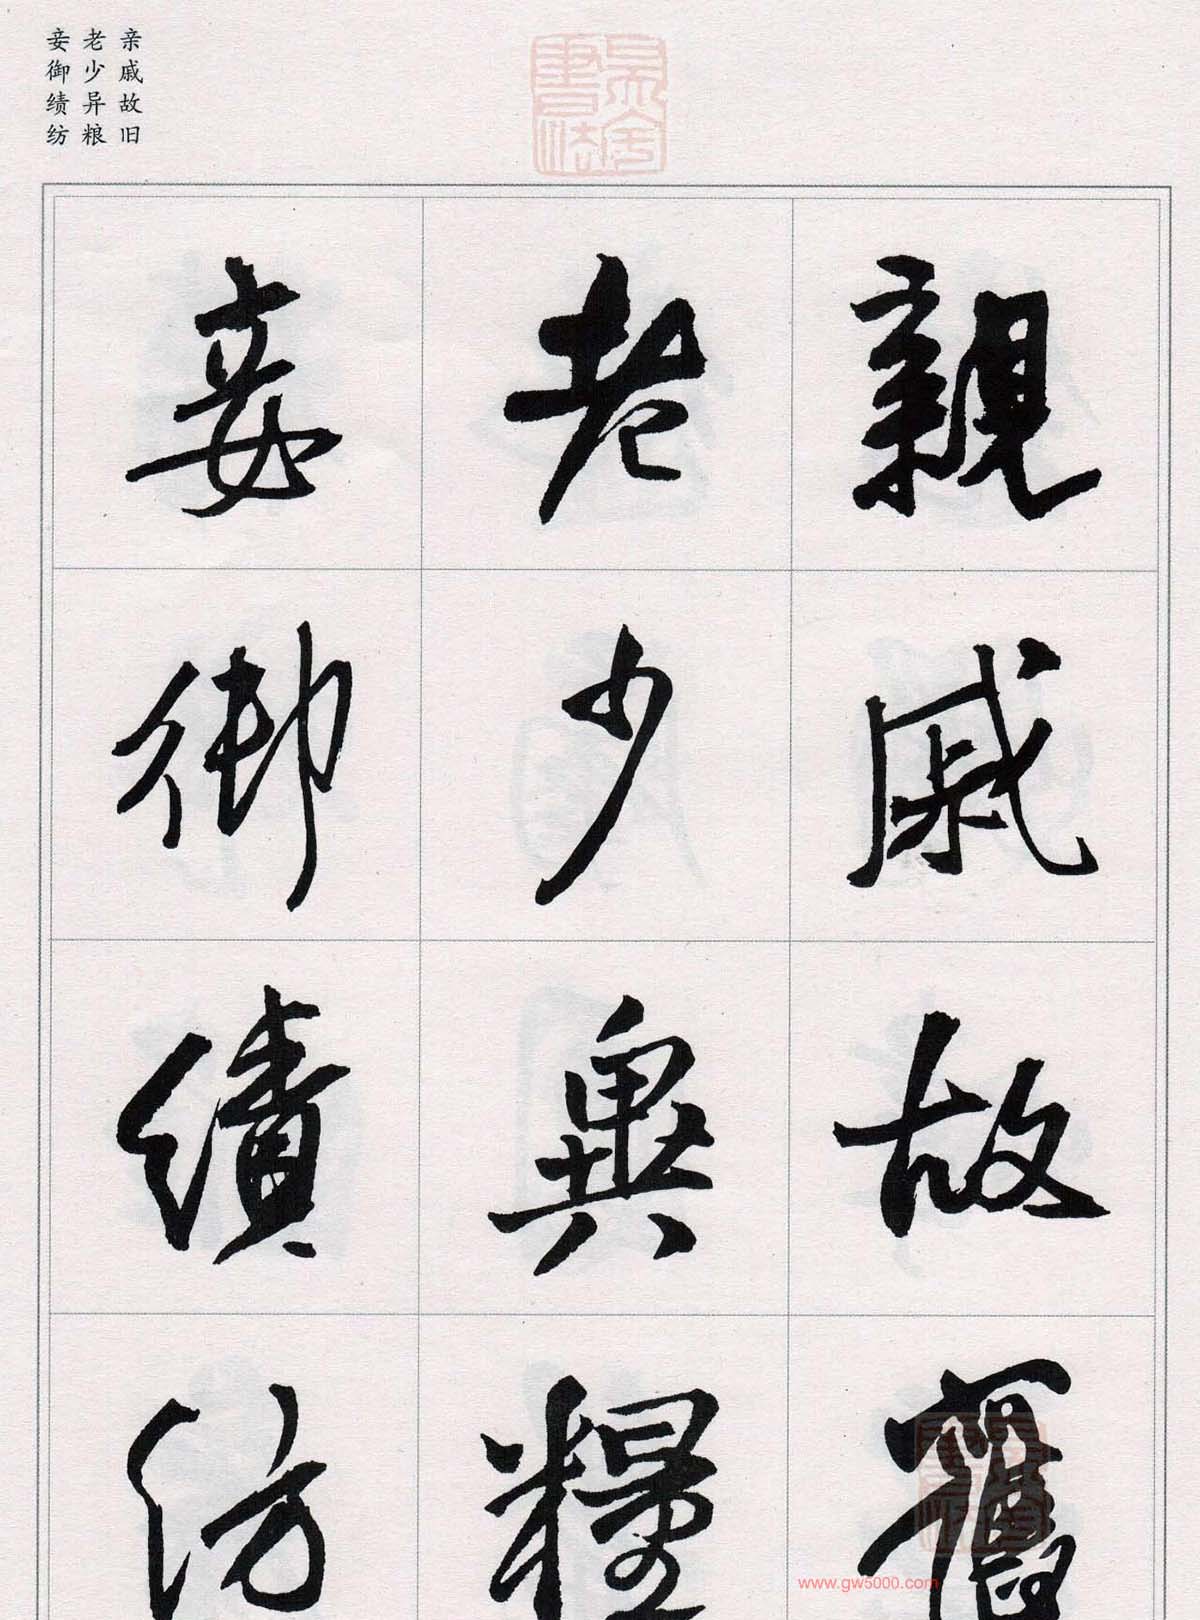 亲戚故旧
老少异粮
妾御绩纺
親戚故舊
老少異糧
妾御績紡
www.gw5000.com